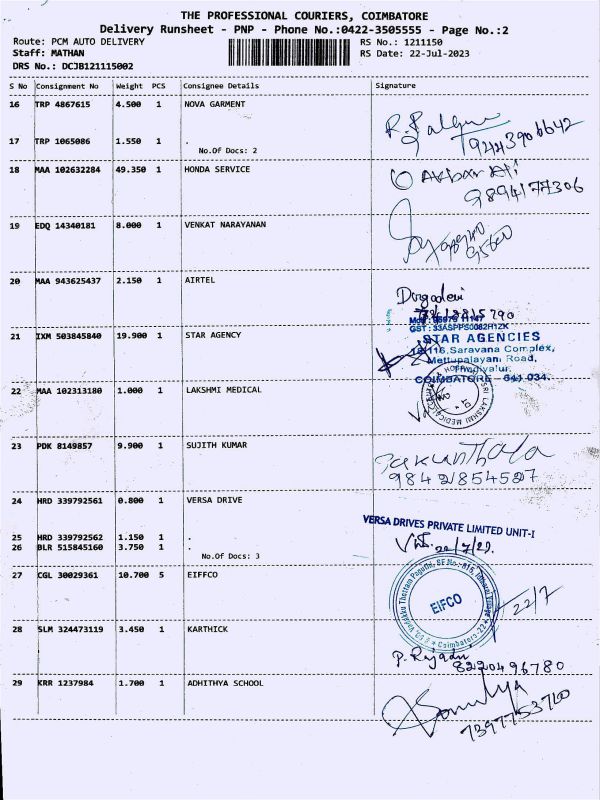 THE PROFESSIONAL COURIERS, COIMBATORE
Delivery Runsheet - PNP - Phone No.:0422-3505555 - Page No.:2
Route: PCM AUTO DELIVERY RS No.: 1211150
Staff: MATHAN RS Date: 22-Jul-2023
DRS No.: DCJB121115002
S No Consignment No Weight PCS Consignee Details Signature
16 TRP 4867615 4.500 1 NOVA GARMENT
17 TRP 1065086 1.550 1 .
No.Of Docs: 2
9443906642
18 MAA 102632284 49.350 1 HONDA SERVICE
Akbar Ali
9894177306
19 EDQ 14340181 8.000 1 VENKAT NARAYANAN
20 MAA 943625437 2.150 1 AIRTEL
Durgadevi
21 IXM 503845840 19.900 1 STAR AGENCY
GST : 33ASPPS0082H1ZK
STAR AGENCIES
116, Saravana Complex,
Mettupalayam Road,
Thudiyalur,
COIMBATORE 641 034.
22 MAA 102313180 1.000 1 LAKSHMI MEDICAL
SRI LAKSHMI MEDICAL
23 PDK 8149857 9.900 1 SUJITH KUMAR
Sakunthala
9842854527
24 HRD 339792561 0.800 1 VERSA DRIVE
VERSA DRIVES PRIVATE LIMITED UNIT-I
25 HRD 339792562 1.150 1 .
26 BLR 515845160 3.750 1 .
No.Of Docs: 3
27 CGL 30029361 10.700 5 EIFFCO
EIFCO
22/7
28 SLM 324473119 3.450 1 KARTHICK
8220496780
29 KRR 1237984 1.700 1 ADHITHYA SCHOOL
7397753760